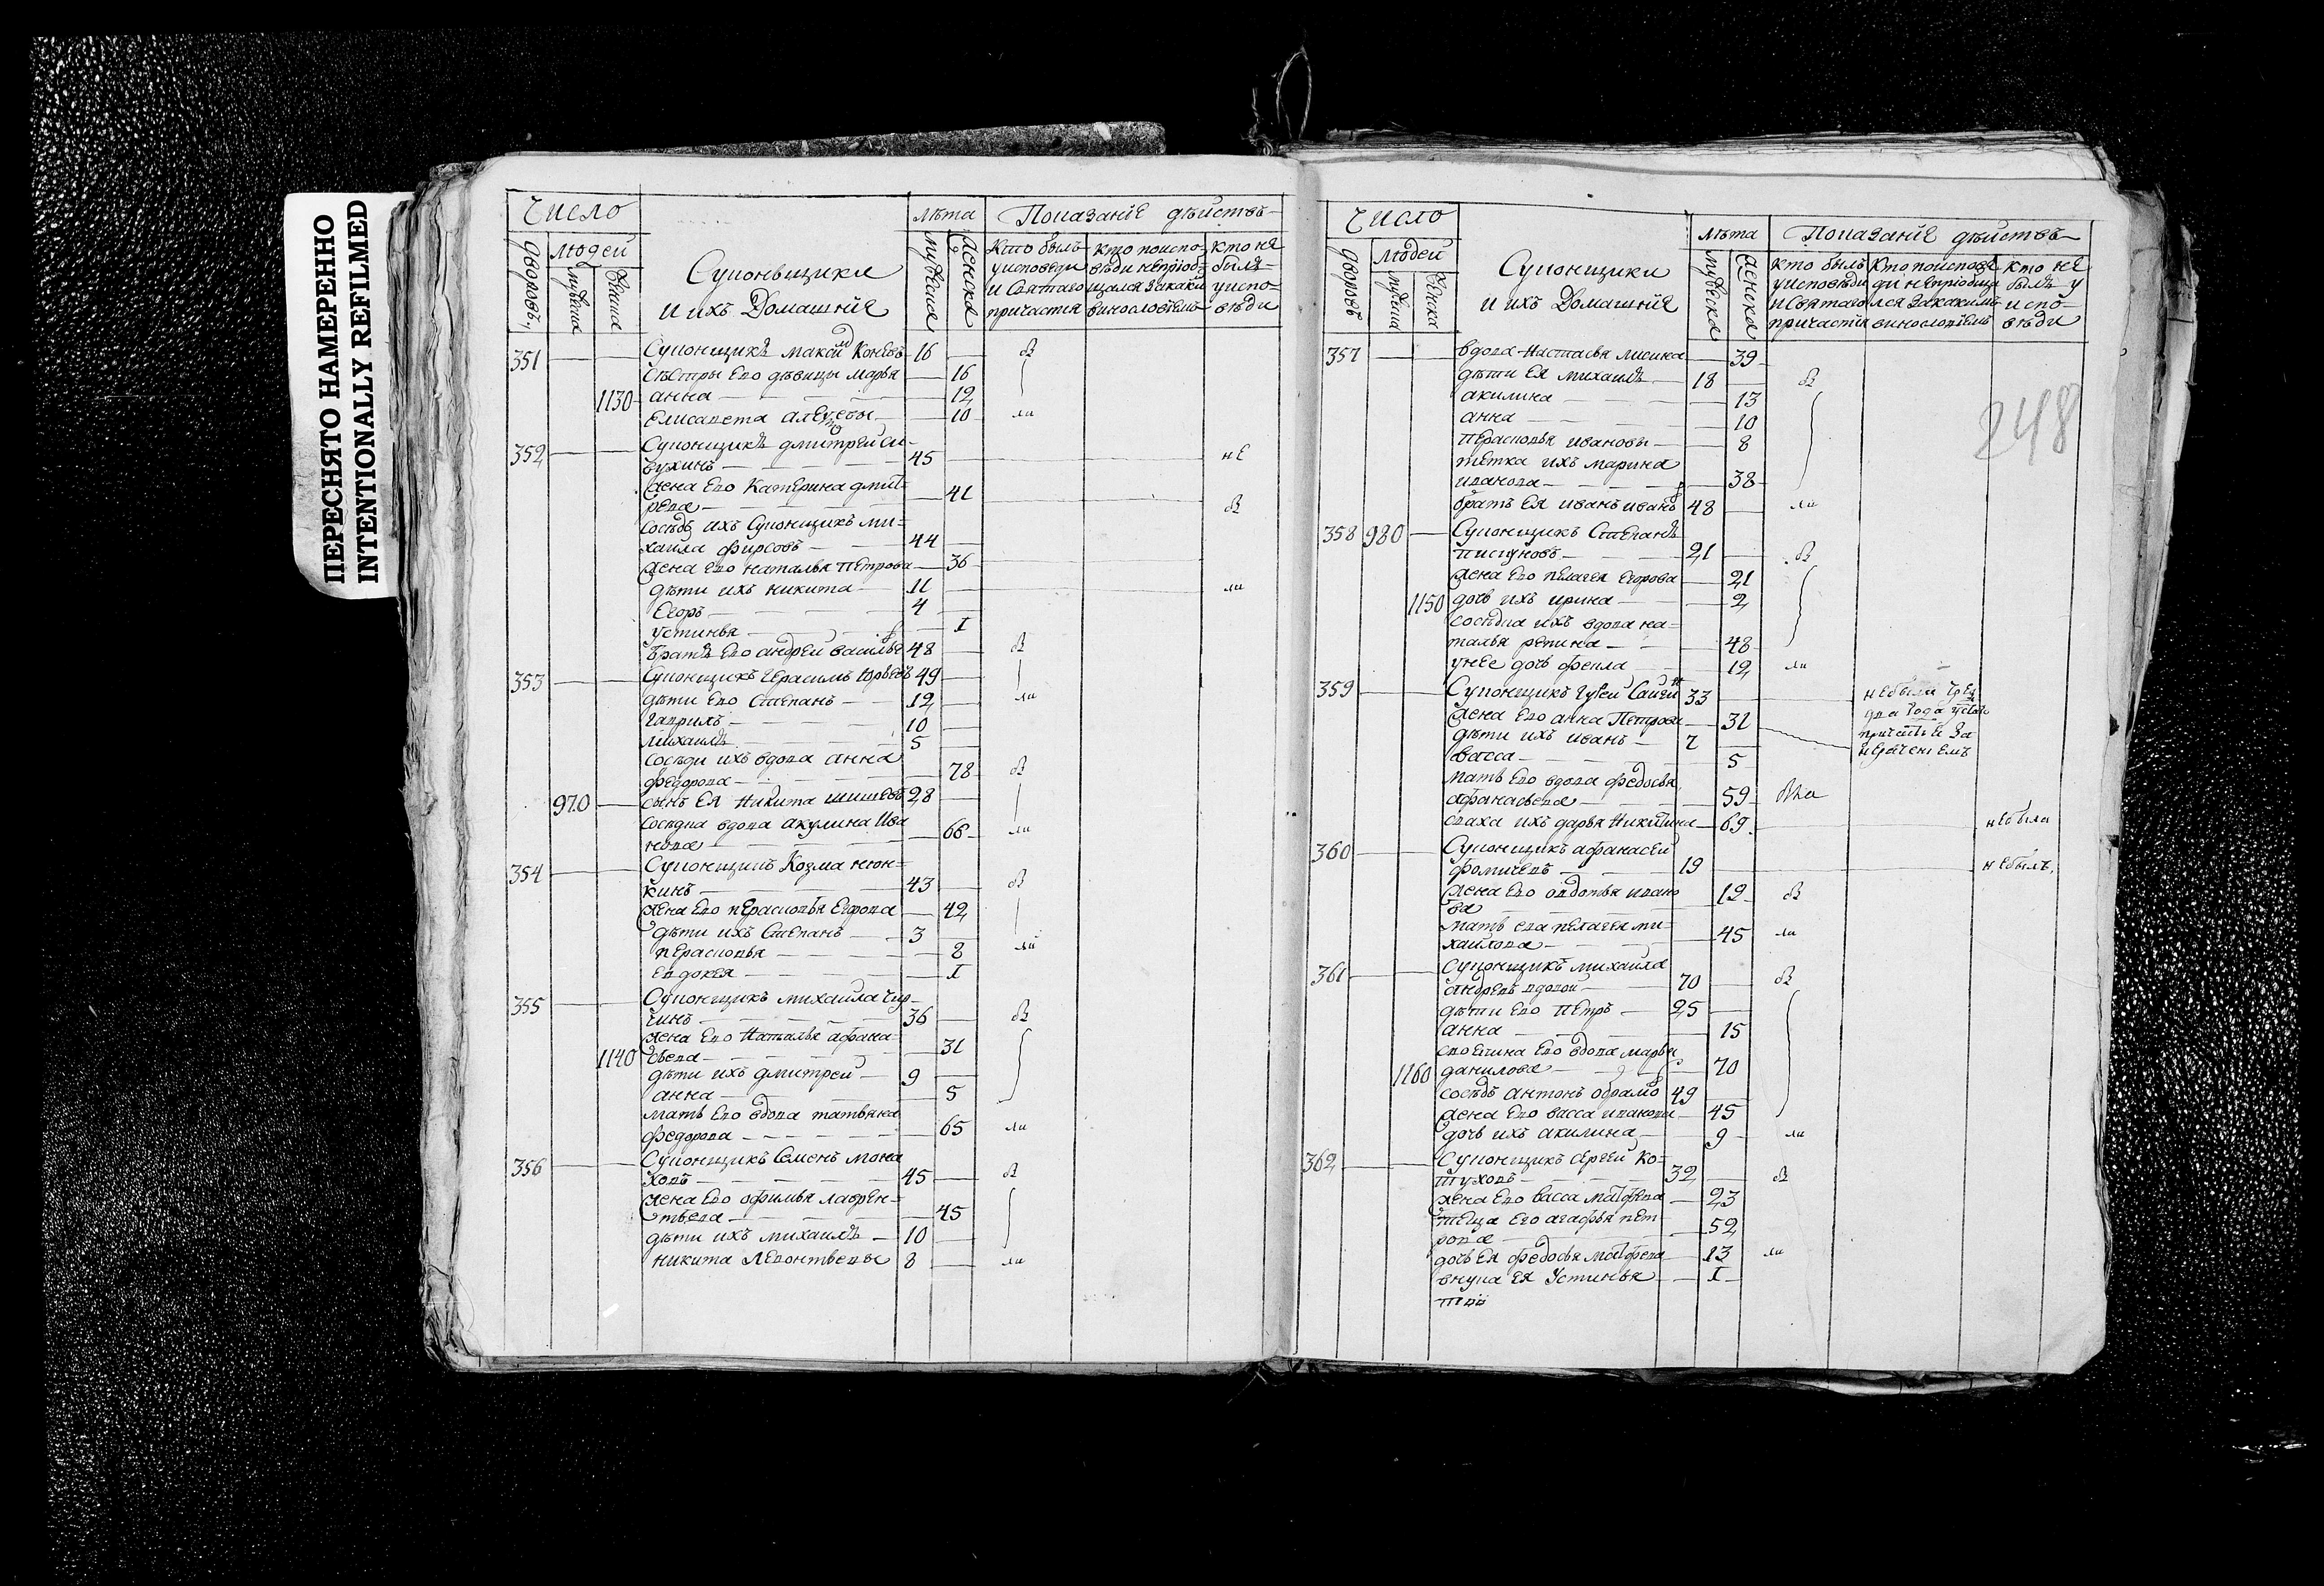 ПЕРЕСНЯТО НАМЕРЕННО
INTENTIONALLY REFILMED
Число
людей
дворовъ
мужеска
женска
Суконщики
и ихъ домашнїе
лѣта
мужеска
женска
Показанїе дѣйствъ
кто былъ у исповѣди и святаго причастїя
кто поиспо-
винословїемъ
кто не былъ у испо-
вѣди
351 Суконщикъ Макси Коневъ 16
сестры его дѣвицы Марья 16
1130 анна 12
елисавета 10
352 Суконщикъ дмитрей
45 не
жена его Катерина дмит-
рева 41
сосѣдъ ихъ Суконщикъ ми-
хаила фирсовъ 44
жена его наталья петрова 36
дѣти ихъ никита 11 ли
Егоръ 4
устинья 1
братъ его андрей василье 48
353 Суконщикъ герасимъ юрьевъ 49
дѣти его Степанъ 12 ли
гаврилъ 10
михаилъ 5
сосѣди ихъ вдова анна
федорова 78
970 сынъ ея никита шишовъ 28
сосѣдка вдова акулина ива
нова 66 ли
354 Суконщикъ Козма нюн-
кинъ 43
жена егоперасковья 42
дѣти ихъ Степанъ 3
перасковья 8 ли
евдокея 1
355 Суконщикъ михаила чир-
36
жена его наталья афана
1140 сьева 31
дѣти ихъ дмитрей 9
анна 5
мать его вдова татьяна
федорова 65 ли
356 Суконщикъ Семенъ мона
ховъ 45
жена его офимья лаврен-
тьева 45
дѣти ихъ михаилъ 10
никита леонтьевы 8 ли
Число
людей
дворовъ
мужеска
женска
Суконщики
и ихъ домашнїе
лѣта
мужеска
женска
Показанїе дѣйствъ
кто былъ у исповѣди и святаго причастїя
кто не былъ у испо-
вѣди
248
357 вдова настасья лисина 39
дѣти ея михаилъ 18
акилина 13
анна 10
перасковья ивановы 8
тетка ихъ марина
иванова 38
братъ ея иванъ ивано 48 ли
358 980 Суконщикъ Степанъ
пискуновъ 21
жена его пелагея егорова 21
1150 дочь ихъ ирина 2
сосѣдка ихъ вдова на-
талья репина 48
унее дочь фекла 12 ли
359 Суконщикъ 33
жена его анна Петрова 31
дѣти ихъ иванъ 7
васса 5
мать его вдова федосья
афанасьева 59
сваха ихъ дарья никитина 69 небыла
360 Суконщикъ афанасей
фомичевъ 19 небылъ
жена его авдотья ивано
ва 12
мать ево пелагея ми-
хаилова 45 ли
361 Суконщикъ михаила
андревъ вдовой 70
дѣти его петръ 25
анна 15
своячина его вдова марья
1160 данилова 70
сосѣдъ антонъ обрамо 49
жена его васса иванова 45
дочь ихъ акилина 9 ли
362 Суконщикъ сергей Ко-
туховъ 32
жена его васса матфева 23
теща его агафья пет
рова 52
дочь ея федосья матфева 13 ли
внука ея Устинья 1